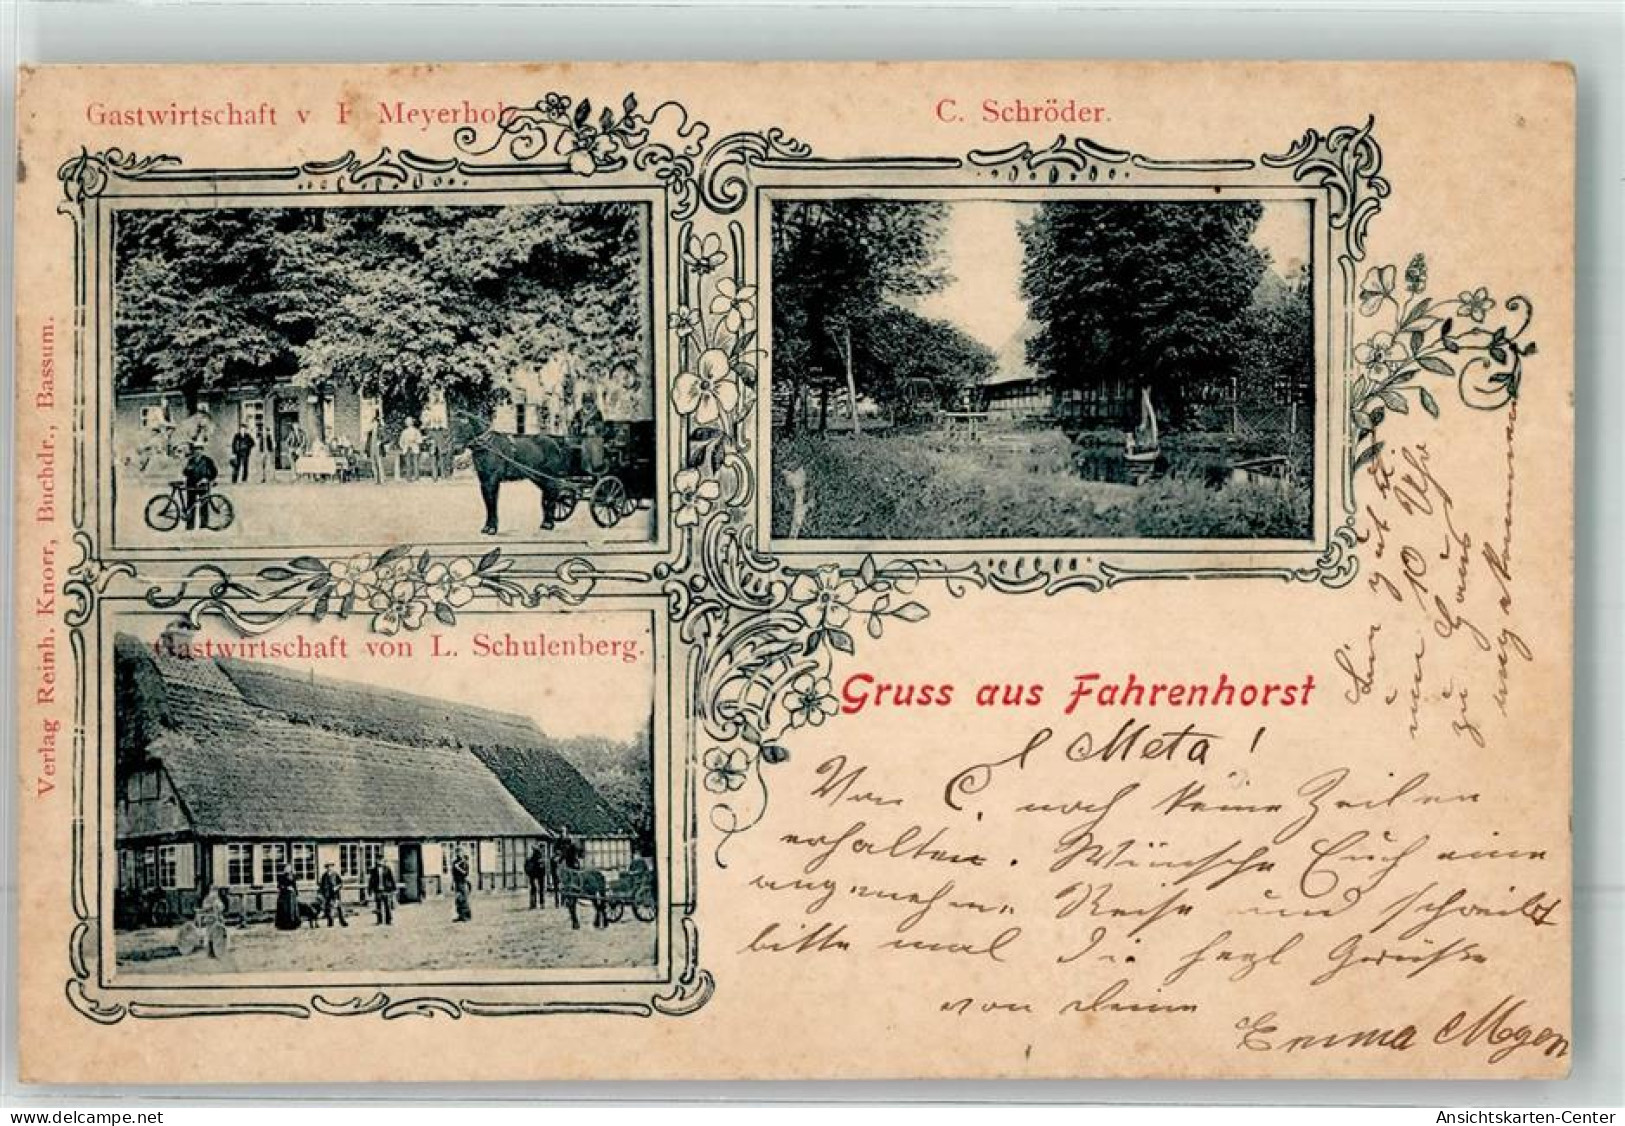 Gastwirtschaft v F Meyerholz
C. Schröder.
Verlag Reinh. Knorr, Buchdr., Bassum.
Gastwirtschaft von L. Schulenberg.
Gruss aus Fahrenhorst
l Meta!
Von C. noch keine Zeilen
erhalten. Wünsche Euch eine
angenehme Reise und schreibt
bitte mal Die herzl Grüße
von Deine
Emma
10 Uhr
zu Haus
Ansichtskarten-Center
delcampe.net